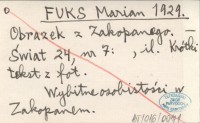 FUKS Marian 1929.
Obrazek z Zakopanego. –
Świat 24, nr 7: , il. Krótki
tekst z fot.
Wybitne osobistości w
Zakopanem.